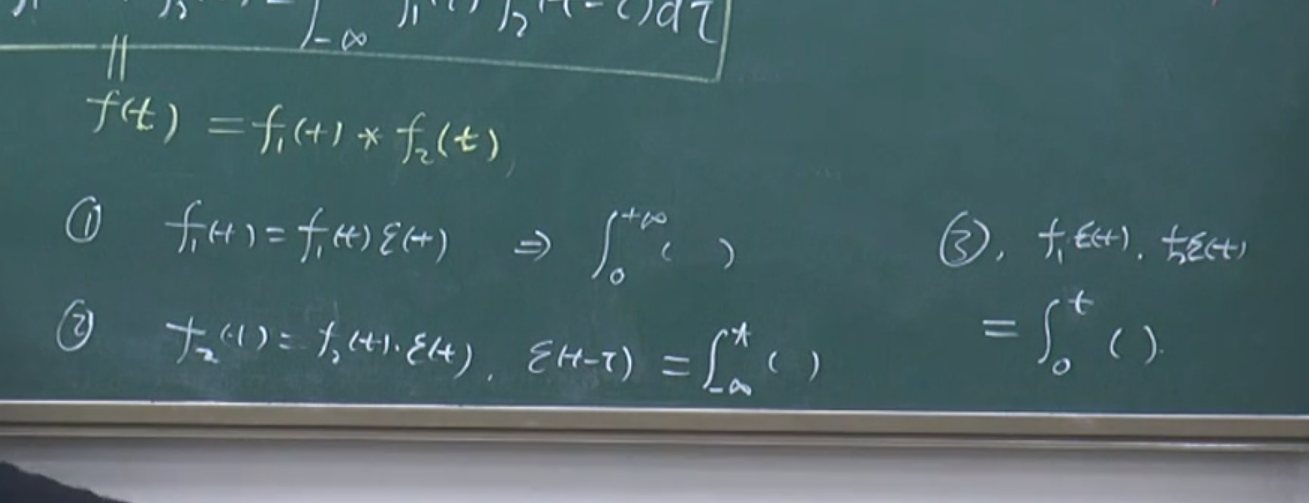 ∫_{-∞} f₁(τ) f₂(t-τ)dτ
||
f(t) = f₁(t) * f₂(t)
① f₁(t) = f₁(t) ε(t) ⇒ ∫₀^{+∞} ( )
② f₂(t) = f₂(t)·ε(t), ε(t-τ) = ∫_{-∞}^{t} ( )
③, f₁ε(t), f₂ε(t)
= ∫₀^{t} ( ).